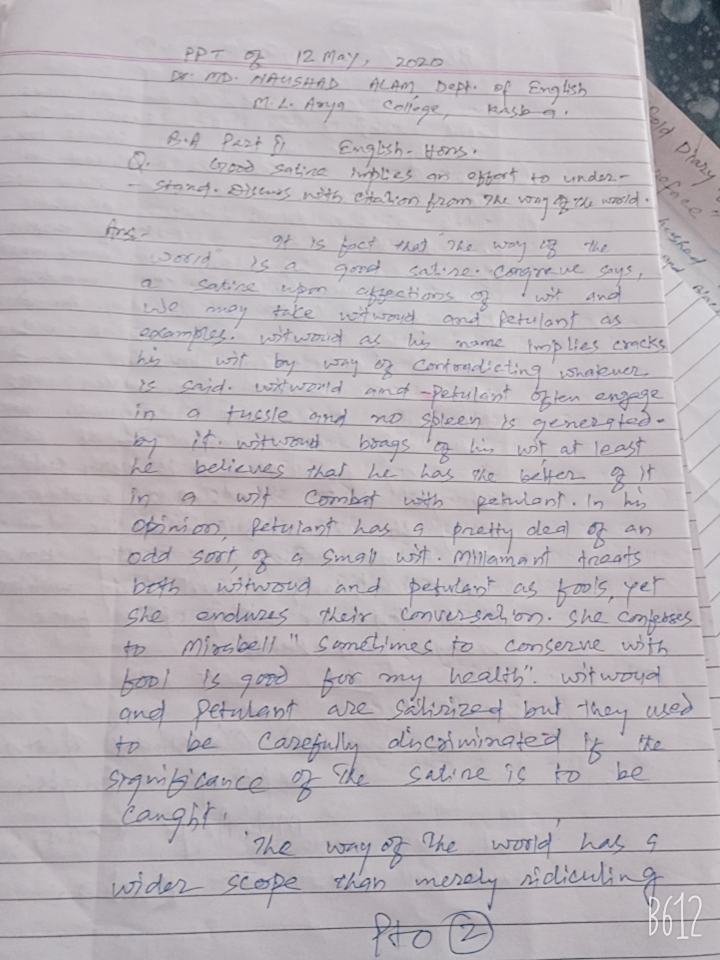 PPT of 12 May, 2020
Dr. MD. NAUSHAD ALAM Dept. of English
M.L. Arya College, Kasba.
B.A Part II English-Hons.
Q. Good satire implies an effort to under-
- stand. Discuss with citation from The way of the world.
Ans:- It is fact that 'The way of the
world' is a good satire. Congreve says,
a satire upon affections of wit and
We may take witwoud and Petulant as
examples. witwoud as his name implies cracks
his wit by way of contradicting whatever
is said. witwould and Petulant often engage
in a tussle and no spleen is generated-
by it. witwoud brags of his wit at least
he believes that he has the better of it
in a wit combat with petulant. In his
opinion, Petulant has a pretty deal of an
odd sort, of a small wit. Millamant treats
both witwoud and petulant as fools, yet
She endures their conversation. She confesses
to Mirabell "Sometimes to conserve with
fool is good for my health". witwoud
and Petulant are satirized but they used
to be carefully discriminated if the
significance of the satire is to be
caught.
'The way of The world' has a
wider scope than merely ridiculing
PTO 2
old Diary
eface
haushad
B612